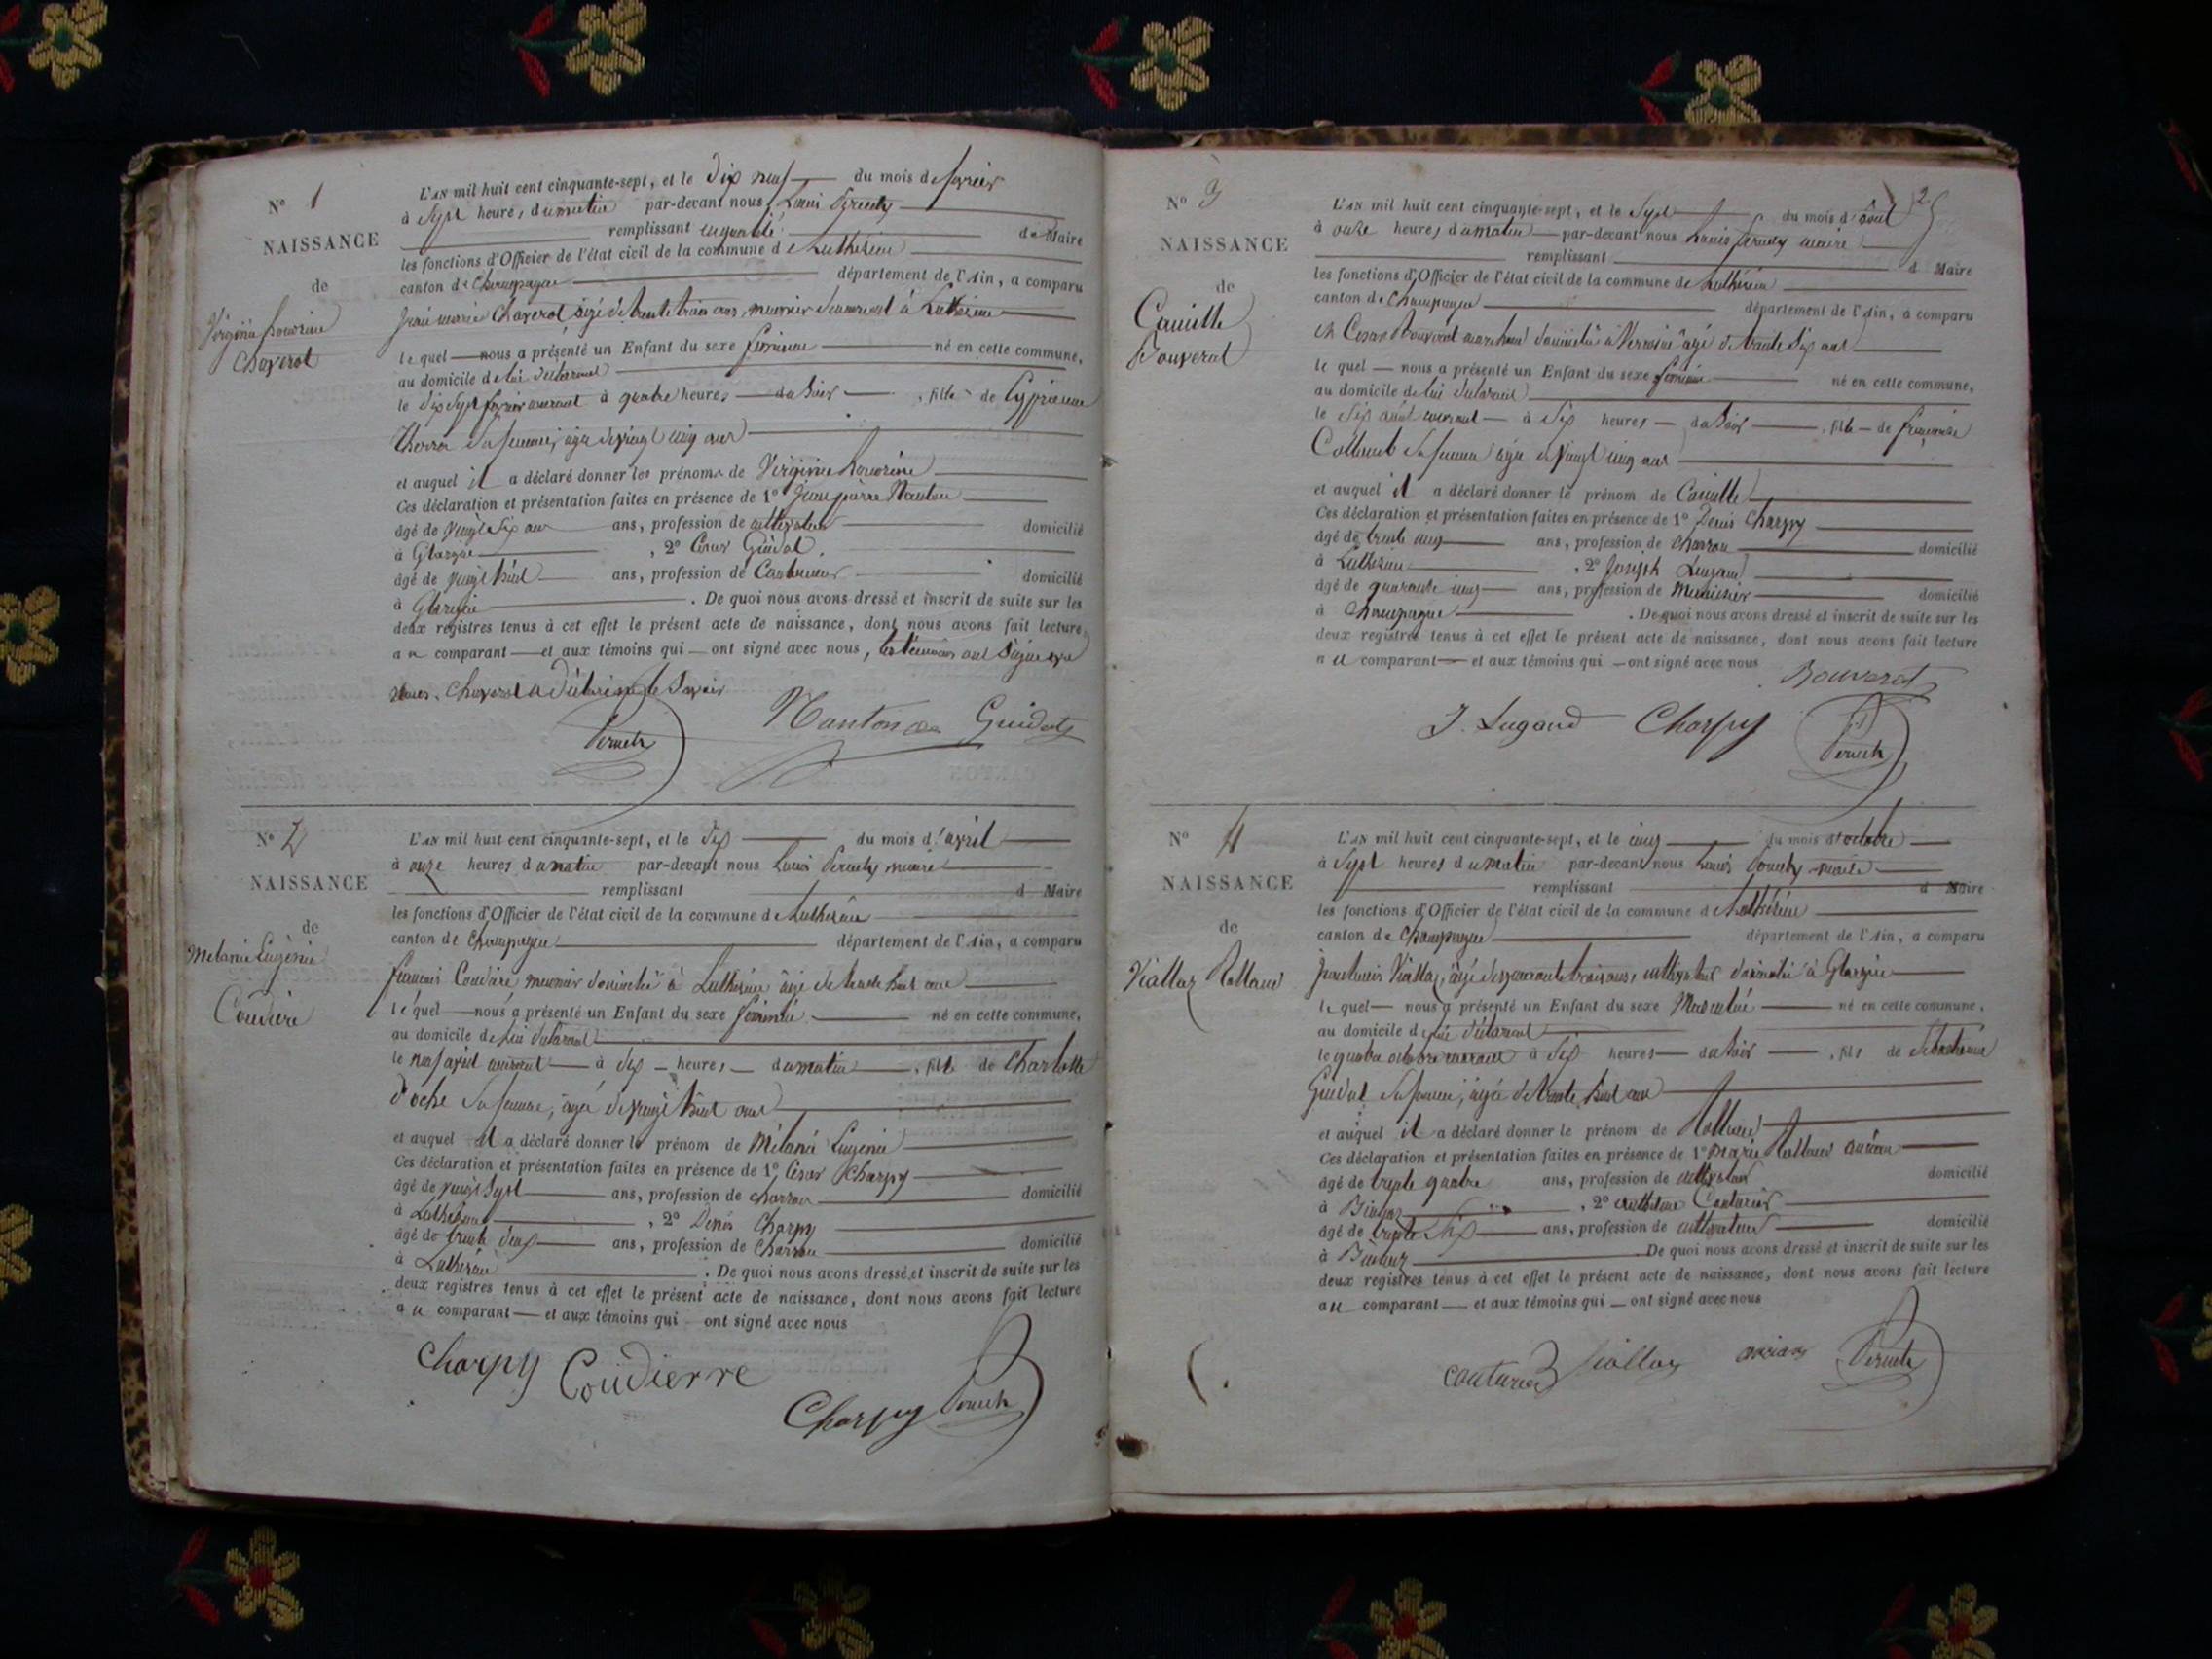 N° 1
NAISSANCE
de
Virginie
Chaverot
L'AN mil huit cent cinquante-sept, et le dix neuf du mois de février
à sept heures du matin par-devant nous, Louis
remplissant en qualité de Maire
les fonctions d'Officier de l'état civil de la commune de Luthézieu
canton de Champagne département de l'Ain, a comparu
Jean marie Chaverot âgé de trente trois ans, meunier demeurant à Luthézieu
lequel nous a présenté un Enfant du sexe féminin né en cette commune,
au domicile de lui déclarant
le dix sept février courant à quatre heures du soir, fille de Cyprienne
sa femme, âgée de vingt cinq ans
et auquel il a déclaré donner les prénoms de Virginie
Ces déclaration et présentation faites en présence de 1° Jean pierre Nanton
âgé de vingt six ans ans, profession de cultivateur domicilié
à, 2° César Guidot.
âgé de vingt huit ans, profession de domicilié
à. De quoi nous avons dressé et inscrit de suite sur les
deux registres tenus à cet effet le présent acte de naissance, dont nous avons fait lecture
au comparant et aux témoins qui ont signé avec nous, les témoins ont signé avec
nous. Chaverot a déclaré ne le savoir
Nanton Guidot
Peruch
N° 2
NAISSANCE
de
Melanie Eugènie
Coudière
L'AN mil huit cent cinquante-sept, et le dix du mois d'avril
à onze heures du matin par-devant nous Louis maire
remplissant d Maire
les fonctions d'Officier de l'état civil de la commune de Luthézieu
canton de Champagne département de l'Ain, a comparu
françois Coudière meunier domicilié à Luthézieu âgé de trente huit ans
lequel nous a présenté un Enfant du sexe féminin né en cette commune,
au domicile de lui déclarant
le neuf avril courant à dix heures du matin, fille de Charlotte
d'oche sa femme, âgée de vingt huit ans
et auquel il a déclaré donner le prénom de Mélanie Eugenie
Ces déclaration et présentation faites en présence de 1° César Charpy
âgé de vingt sept ans, profession de charron domicilié
à Luthézieu, 2° Denis Charpy
âgé de trente deux ans, profession de Charron domicilié
à Luthézieu. De quoi nous avons dressé et inscrit de suite sur les
deux registres tenus à cet effet le présent acte de naissance, dont nous avons fait lecture
au comparant et aux témoins qui ont signé avec nous
Charpy Coudierre
Charpy Peruch
25
N° 3
NAISSANCE
de
Camille
Bouverat
L'AN mil huit cent cinquante-sept, et le Sept du mois d'août
à onze heures du matin par-devant nous Louis maire
remplissant d Maire
les fonctions d'Officier de l'état civil de la commune de Luthézieu
canton de Champagne département de l'Ain, a comparu
César Bouverat marchand domicilié à âgé de trente six ans
lequel nous a présenté un Enfant du sexe féminin né en cette commune,
au domicile de lui déclarant
le six août courant à six heures du soir, fille de
Collomb sa femme âgée de vingt cinq ans
et auquel il a déclaré donner le prénom de Camille
Ces déclaration et présentation faites en présence de 1° Denis Charpy
âgé de trente cinq ans, profession de Charron domicilié
à Luthézieu, 2° Joseph Lugand
âgé de quarante cinq ans, profession de Menuisier domicilié
à Champagne. De quoi nous avons dressé et inscrit de suite sur les
deux registres tenus à cet effet le présent acte de naissance, dont nous avons fait lecture
au comparant et aux témoins qui ont signé avec nous
Bouverat
J. Lugand Charpy
Peruch
N° 4
NAISSANCE
de
Viallaz Rolland
L'AN mil huit cent cinquante-sept, et le cinq du mois d'octobre
à Sept heures du matin par-devant nous Louis maire
remplissant d Maire
les fonctions d'Officier de l'état civil de la commune de Luthézieu
canton de Champagne département de l'Ain, a comparu
Jean Louis Viallaz, âgé de quarante trois ans, cultivateur domicilié à
lequel nous a présenté un Enfant du sexe Masculin né en cette commune,
au domicile de lui déclarant
le quatre octobre courant à six heures du soir, fils de
Guidot sa femme, âgée de trente huit ans
et auquel il a déclaré donner le prénom de Rolland
Ces déclaration et présentation faites en présence de 1° Marie Rolland
âgé de trente quatre ans, profession de cultivateur domicilié
à, 2° Anthelme Couturier
âgé de trente six ans, profession de cultivateur domicilié
à. De quoi nous avons dressé et inscrit de suite sur les
deux registres tenus à cet effet le présent acte de naissance, dont nous avons fait lecture
au comparant et aux témoins qui ont signé avec nous
couturier viallaz Peruch